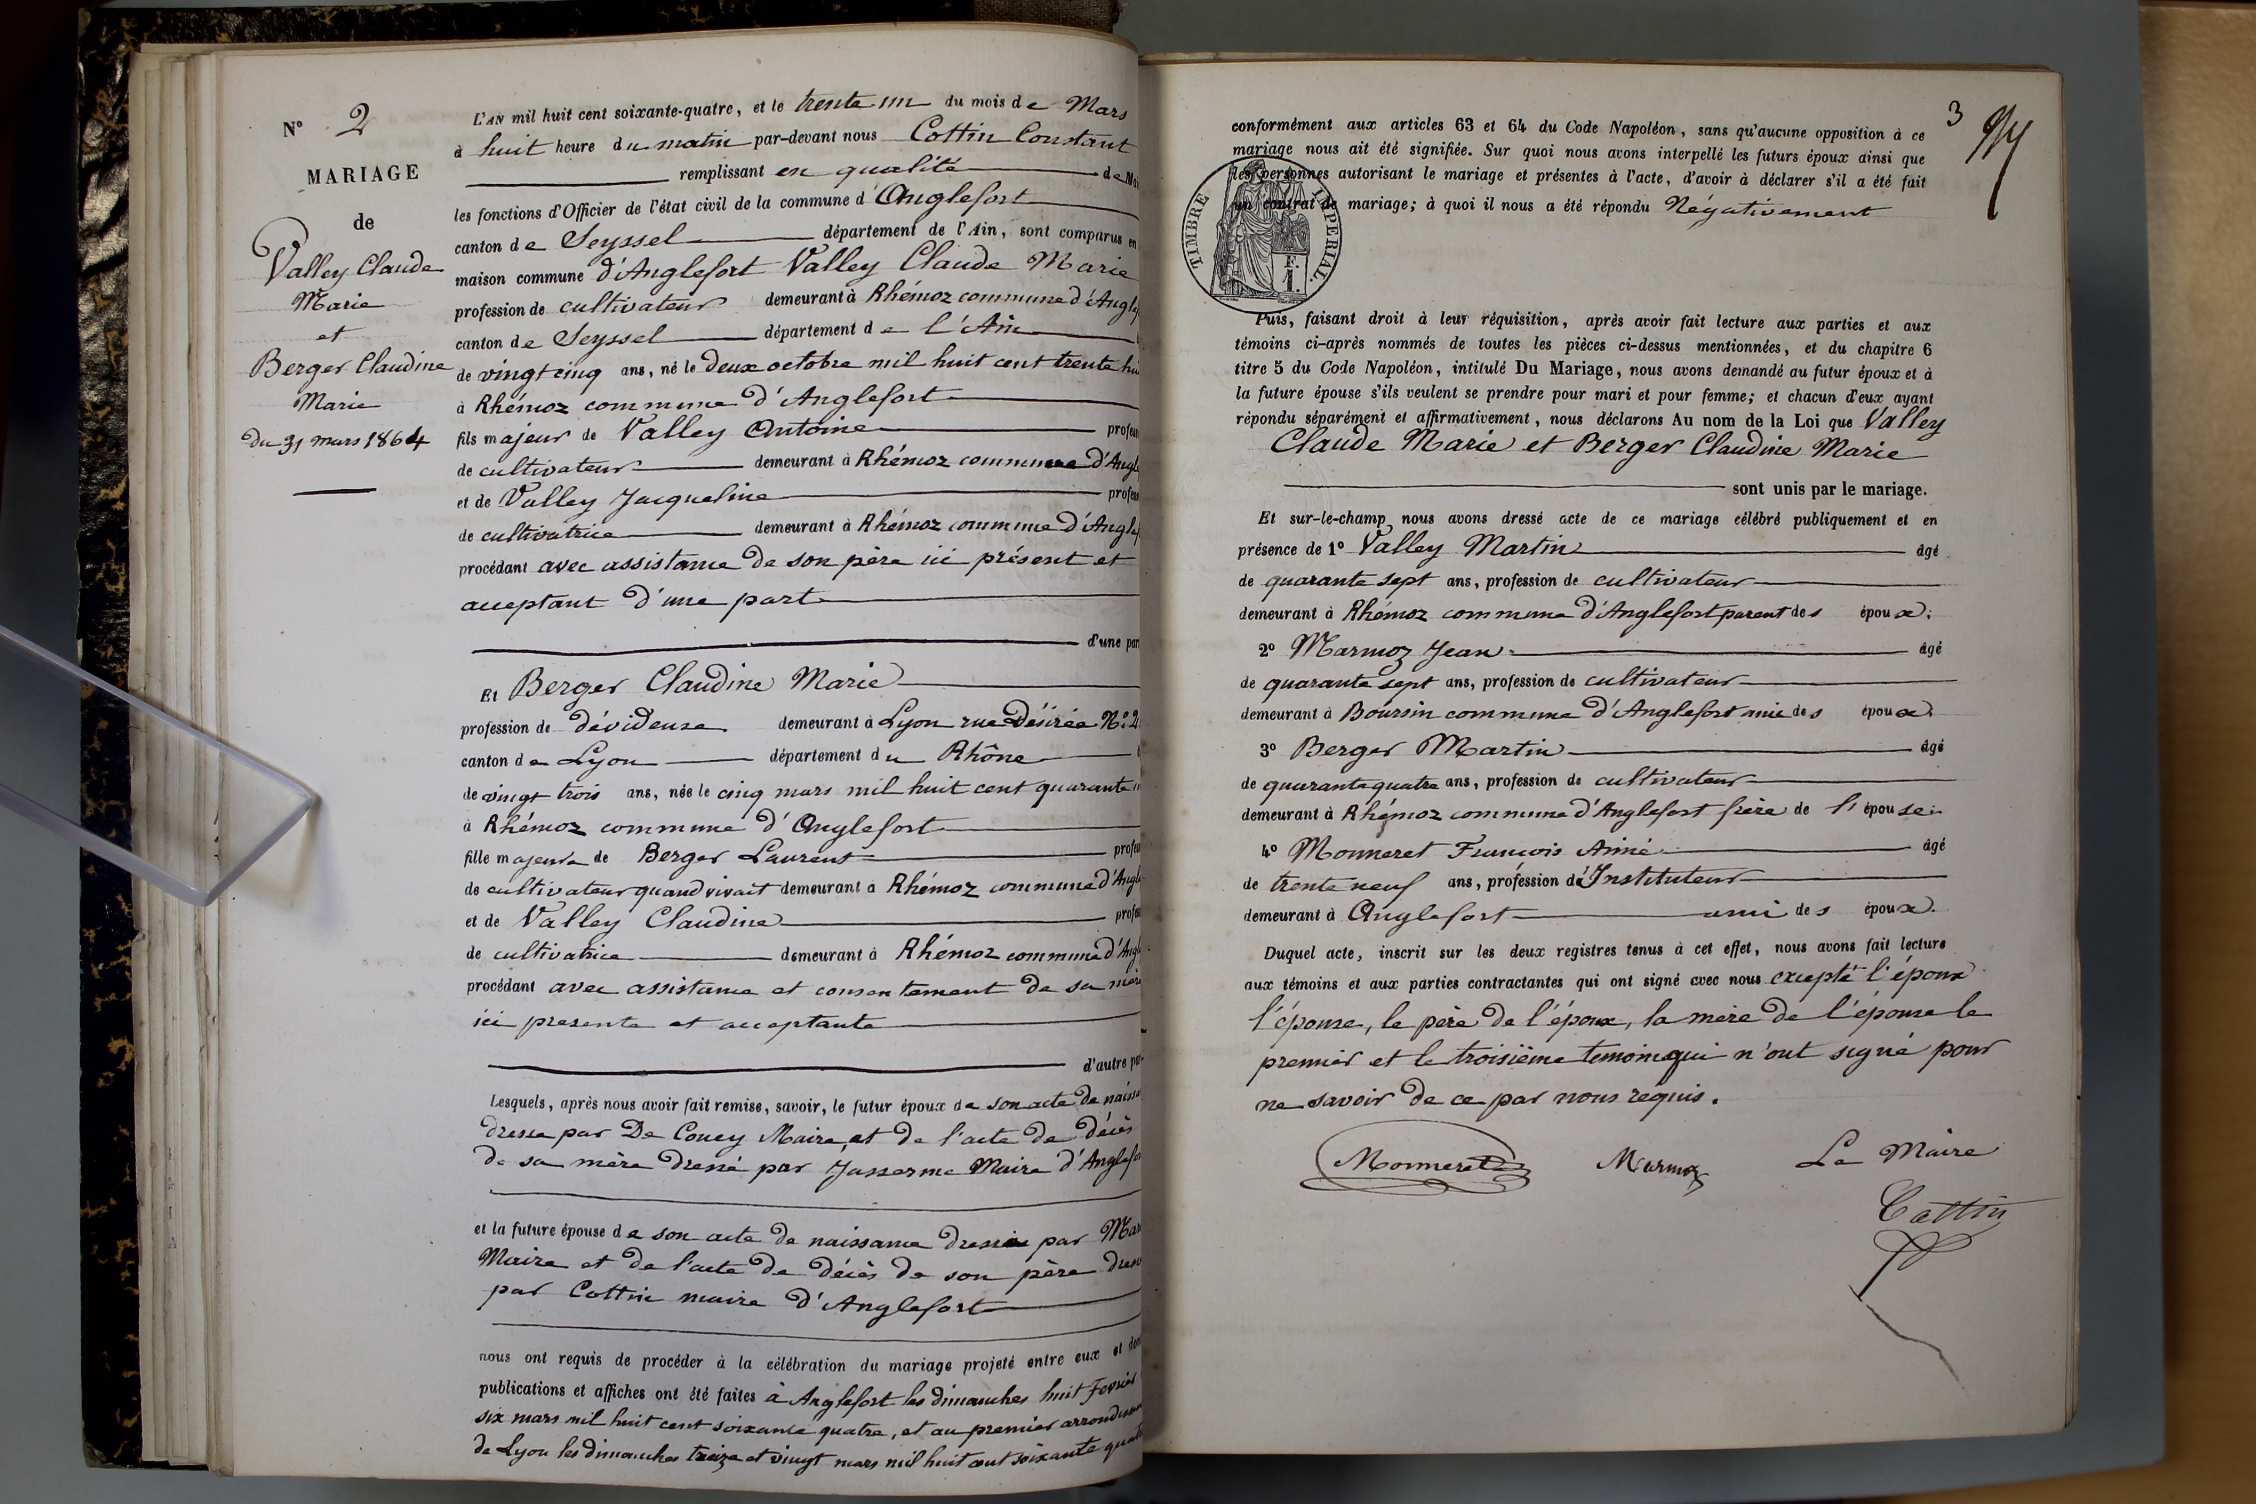 N° 2
MARIAGE
de
Valley Claude
Marie
et
Berger Claudine
Marie
du 31 mars 1864
L'AN mil huit cent soixante-quatre, et le trente un du mois de Mars
à huit heure du matin par-devant nous Cottin Constant
remplissant en qualité de Mai
les fonctions d'Officier de l'état civil de la commune d'Anglefort
canton de Seyssel département de l'Ain, sont comparus en
maison commune d'Anglefort Valley Claude Marie
profession de cultivateur demeurant à Rhémoz commune d'Anglef
canton de Seyssel département de l'Ain
de vingt cinq ans, né le deux octobre mil huit cent trente hui
à Rhémoz commune d'Anglefort
fils majeur de Valley Antoine profess
de cultivateur demeurant à Rhémoz commune d'Angle
et de Valley Jacqueline profess
de cultivatrice demeurant à Rhémoz commune d'Anglef
procédant avec assistance de son père ici présent et
acceptant d'une part
d'une par
Et Berger Claudine Marie
profession de dévideuse demeurant à Lyon rue Désirée N° 2
canton de Lyon département du Rhône
de vingt trois ans, née le cinq mars mil huit cent quarante
à Rhémoz commune d'Anglefort
fille majeure de Berger Laurent profes
de cultivateur quand vivait demeurant à Rhémoz commune d'Angle
et de Valley Claudine profes
de cultivatrice demeurant à Rhémoz commune d'Angle
procédant avec assistance et consentement de sa mère
ici presente et acceptante
d'autre par
Lesquels, après nous avoir fait remise, savoir, le futur époux de son acte de naissa
dressé par De Coucy Maire, et de l'acte de décès
de sa mère dressé par Jasserme Maire d'Anglefor
et la future épouse de son acte de naissance dressé par Mar
Maire et de l'acte de décès de son père dress
par Cottin maire d'Anglefort
nous ont requis de procéder à la célébration du mariage projeté entre eux et dont
publications et affiches ont été faites à Anglefort les dimanches huit Fevrier
six mars mil huit cent soixante quatre, et au premier arrondissem
de Lyon les dimanches treize et vingt mars mil huit cent soixante quat
3
conformément aux articles 63 et 64 du Code Napoléon, sans qu'aucune opposition à ce
mariage nous ait été signifiée. Sur quoi nous avons interpellé les futurs époux ainsi que
les personnes autorisant le mariage et présentes à l'acte, d'avoir à déclarer s'il a été fait
un contrat de mariage; à quoi il nous a été répondu Négativement
TIMBRE IMPERIAL.
F.
1.
Puis, faisant droit à leur réquisition, après avoir fait lecture aux parties et aux
témoins ci-après nommés de toutes les pièces ci-dessus mentionnées, et du chapitre 6
titre 5 du Code Napoléon, intitulé Du Mariage, nous avons demandé au futur époux et à
la future épouse s'ils veulent se prendre pour mari et pour femme; et chacun d'eux ayant
répondu séparément et affirmativement, nous déclarons Au nom de la Loi que Valley
Claude Marie et Berger Claudine Marie
sont unis par le mariage.
Et sur-le-champ nous avons dressé acte de ce mariage célébré publiquement et en
présence de 1° Valley Martin âgé
de quarante sept ans, profession de cultivateur
demeurant à Rhémoz commune d'Anglefort parent des époux.
2° Marmoz Jean âgé
de quarante sept ans, profession de cultivateur
demeurant à Boursin commune d'Anglefort amie des époux.
3° Berger Martin âgé
de quarante quatre ans, profession de cultivateur
demeurant à Rhémoz commune d'Anglefort frère de l'épouse
4° Monneret François Aimé âgé
de trente neuf ans, profession d'Instituteur
demeurant à Anglefort ami des époux.
Duquel acte, inscrit sur les deux registres tenus à cet effet, nous avons fait lecture
aux témoins et aux parties contractantes qui ont signé avec nous excepté l'époux
l'épouse, le père de l'époux, la mère de l'épouse le
premier et le troisième temoin qui n'ont signé pour
ne savoir de ce par nous requis.
Monneret Marmoz Le Maire
Cottin